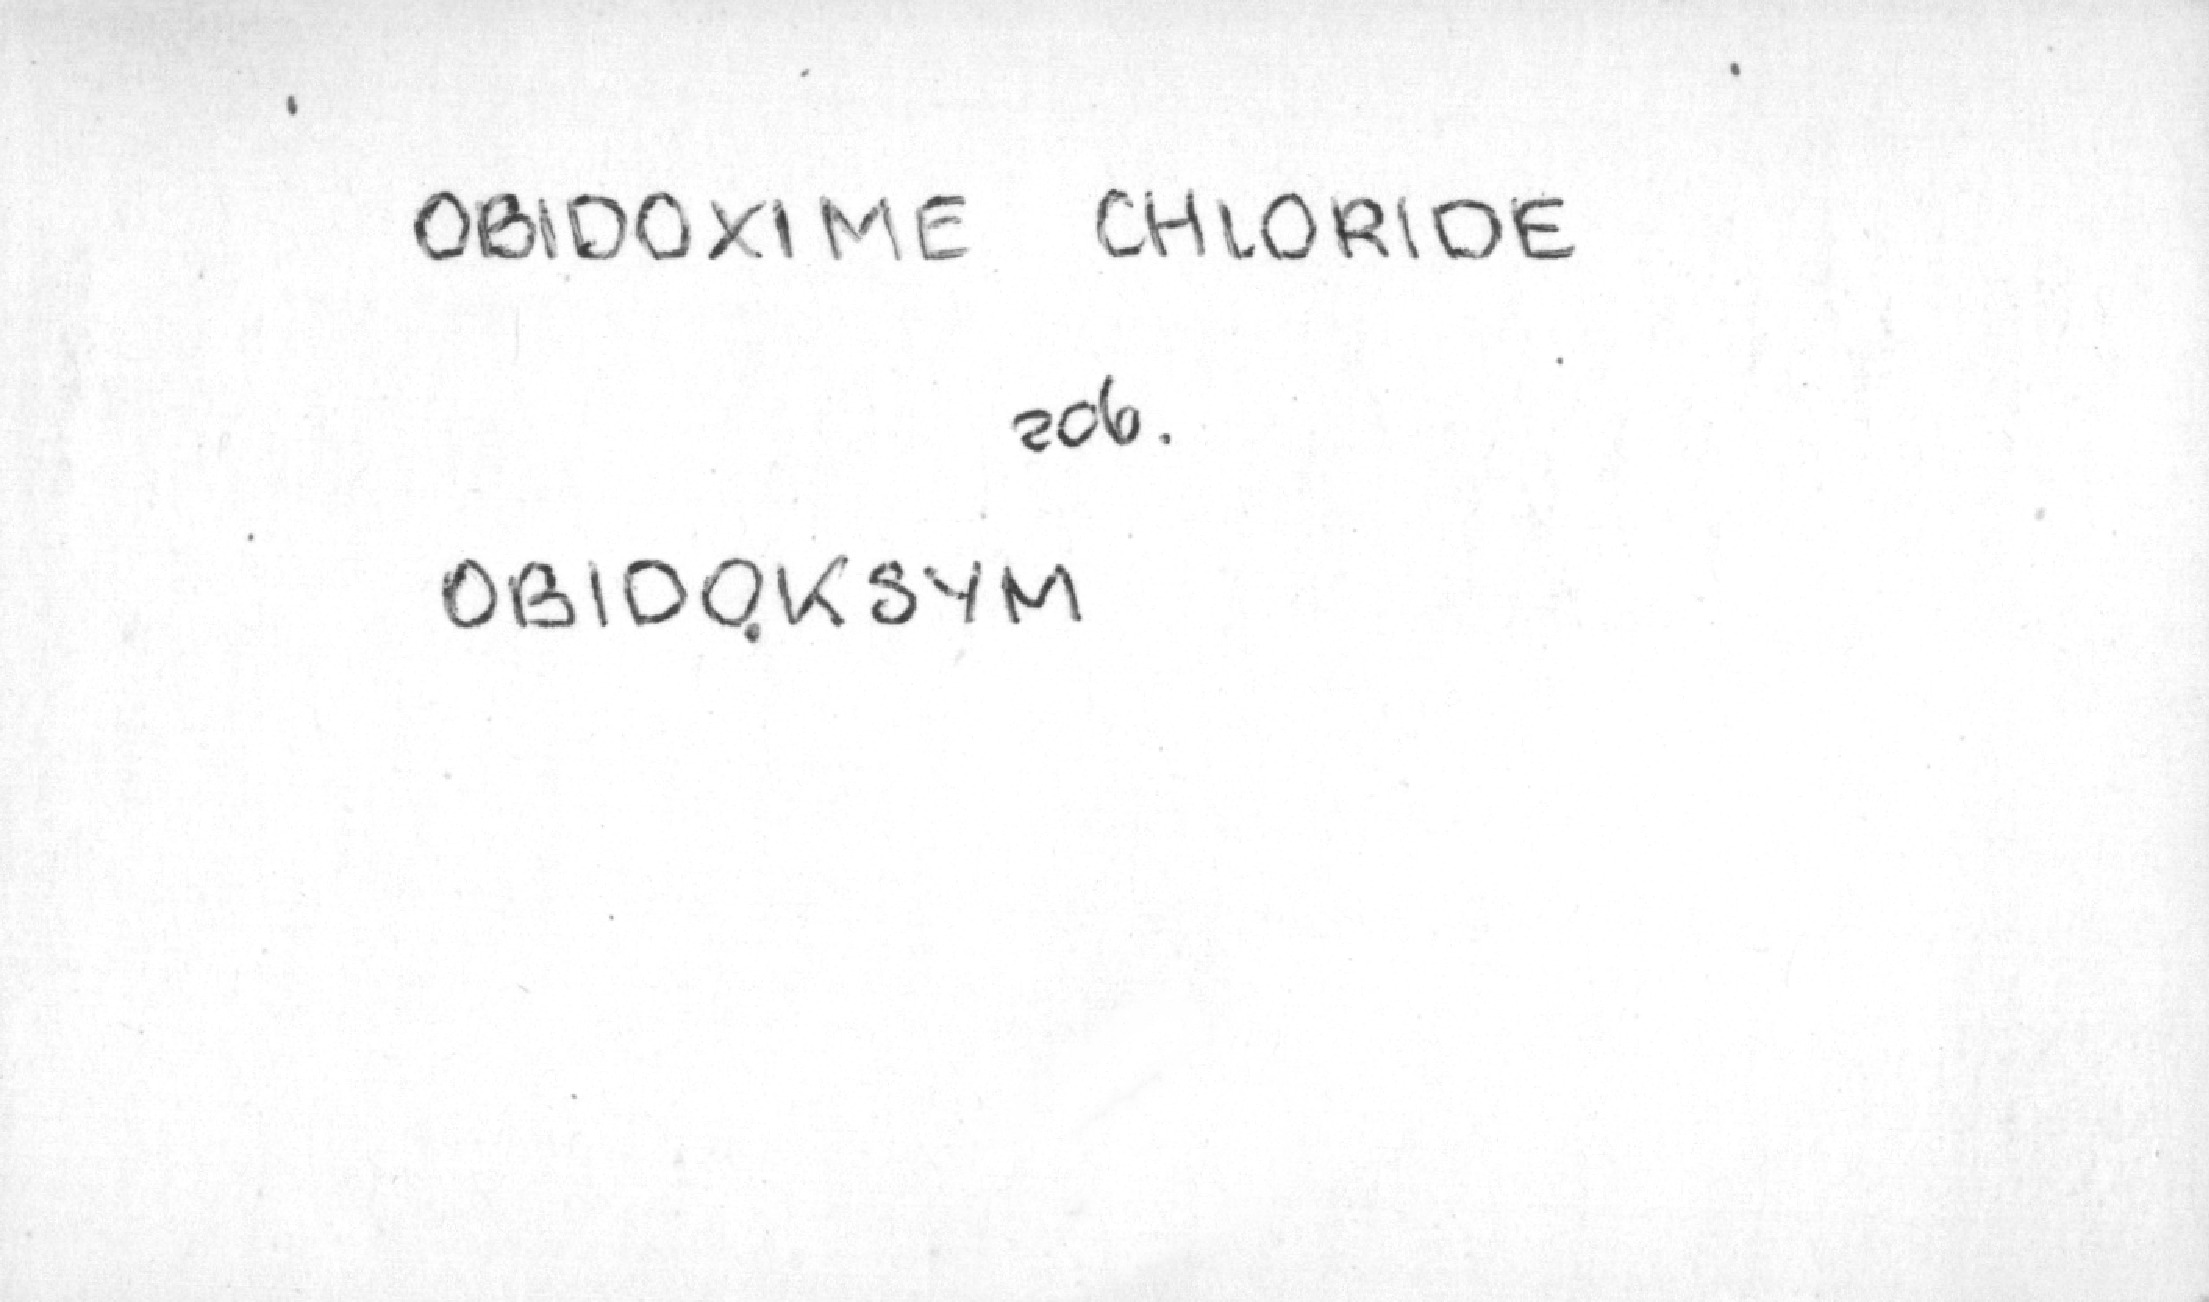 OBIDOXIME CHLORIDE
zob.
OBIDOKSYM